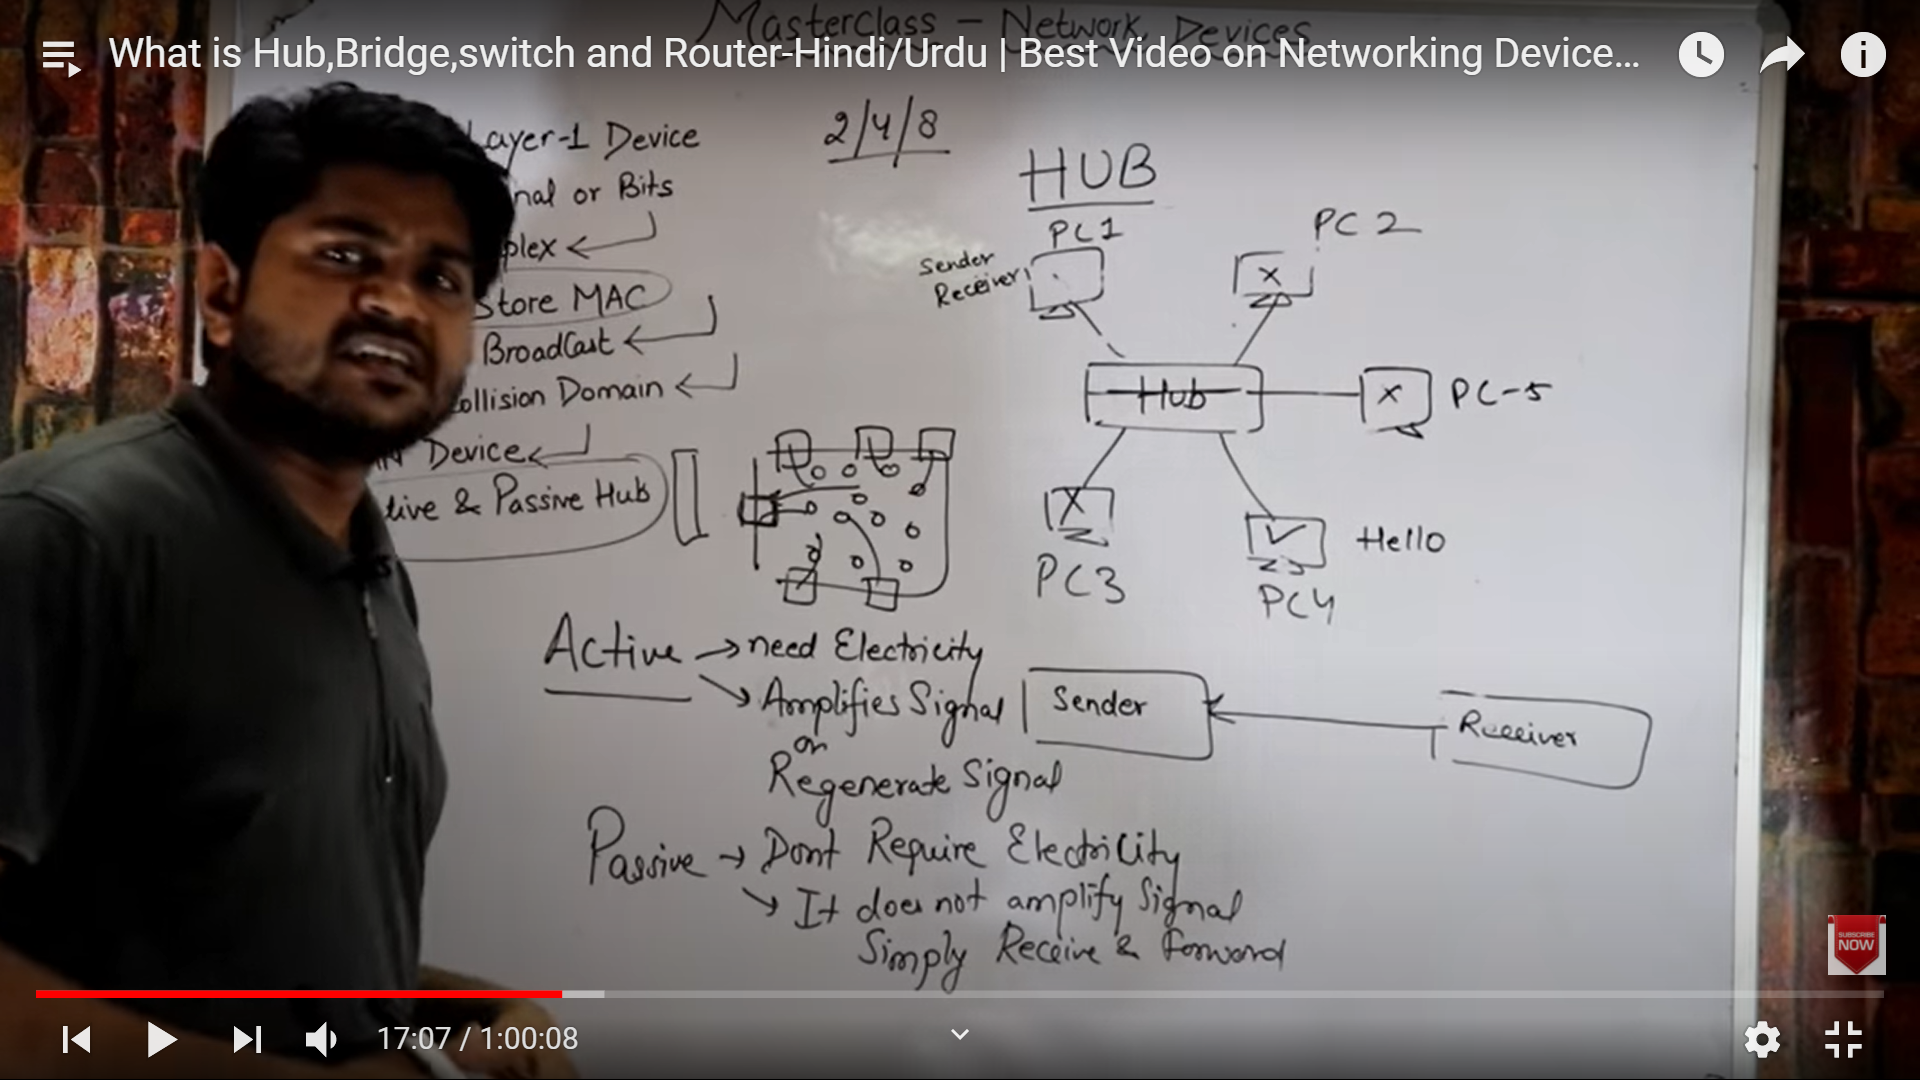 Masterclass - Network Devices
What is Hub,Bridge,switch and Router-Hindi/Urdu | Best Video on Networking Device...
Layer-1 Device
nal or Bits
plex
Store MAC
BroadCast
ollision Domain
Device
tive & Passive Hub
2/4/8
HUB
PC1
Sender
Receiver
PC 2
Hub
X
X PC-5
X
PC3
Hello
PC4
Active → need Electricity
→ Amplifies Signal
or
Regenerate Signal
Sender
Receiver
Passive → Dont Require Electricity
→ It does not amplify Signal
Simply Receive & Forward
SUBSCRIBE
NOW
17:07 / 1:00:08